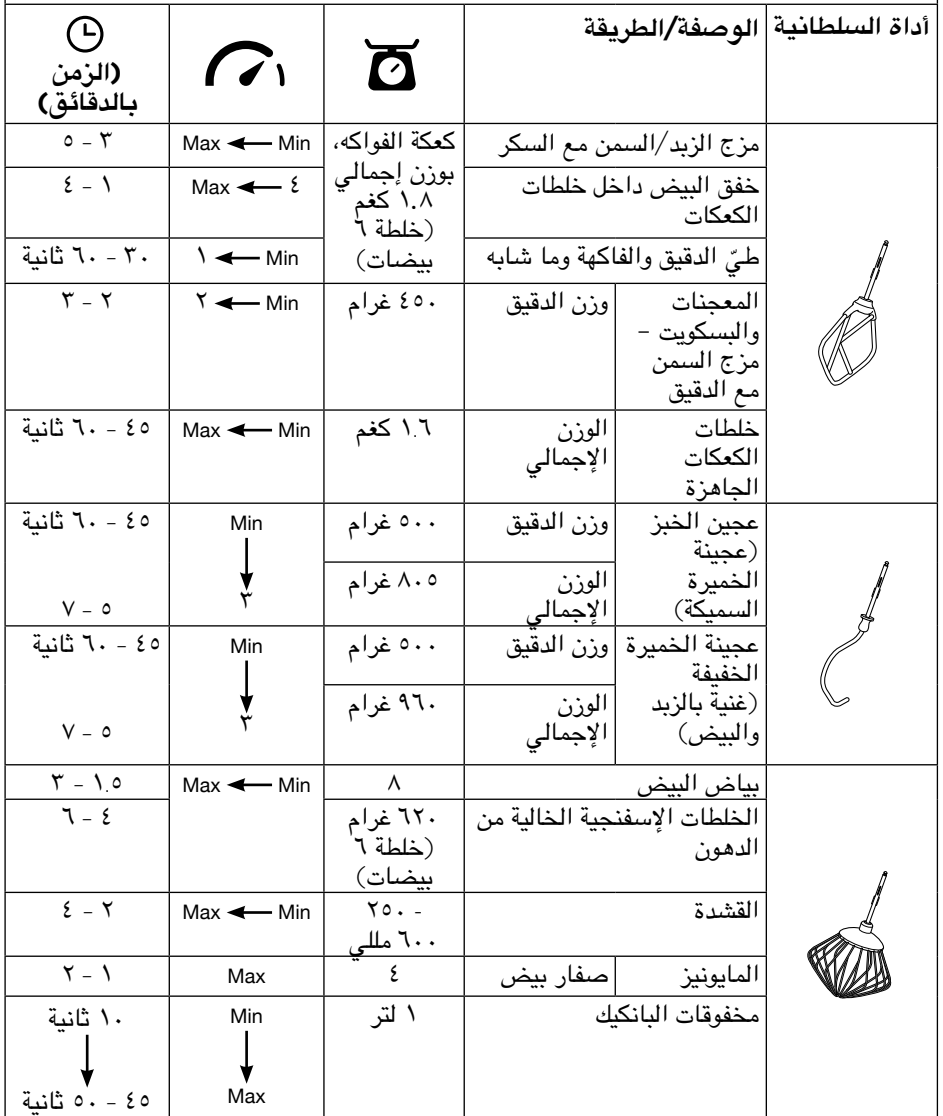 أداة السلطانية
الوصفة/الطريقة
(الزمن
بالدقائق)
مزج الزبد/السمن مع السكر
كعكة الفواكه،
بوزن إجمالي
١.٨ كغم
(خلطة ٦
بيضات)
Min Max
٣ - ٥
خفق البيض داخل خلطات
الكعكات
٤ Max
١ - ٤
طيّ الدقيق والفاكهة وما شابه
Min ١
٣٠ - ٦٠ ثانية
المعجنات
والبسكويت -
مزج السمن
مع الدقيق
وزن الدقيق
٤٥٠ غرام
Min ٢
٢ - ٣
خلطات
الكعكات
الجاهزة
الوزن
الإجمالي
١.٦ كغم
Min Max
٤٥ - ٦٠ ثانية
عجين الخبز
(عجينة
الخميرة
السميكة)
وزن الدقيق
٥٠٠ غرام
الوزن
الإجمالي
٨٠٥ غرام
Min
٣
٤٥ - ٦٠ ثانية
٥ - ٧
عجينة الخميرة
الخفيفة
(غنية بالزبد
والبيض)
وزن الدقيق
٥٠٠ غرام
الوزن
الإجمالي
٩٦٠ غرام
Min
٣
٤٥ - ٦٠ ثانية
٥ - ٧
بياض البيض
٨
Min Max
١.٥ - ٣
الخلطات الإسفنجية الخالية من
الدهون
٦٢٠ غرام
(خلطة ٦
بيضات)
٤ - ٦
القشدة
٢٥٠ -
٦٠٠ مللي
Min Max
٢ - ٤
المايونيز
صفار بيض
٤
Max
١ - ٢
مخفوقات البانكيك
١ لتر
Min
Max
١٠ ثانية
٤٥ - ٥٠ ثانية